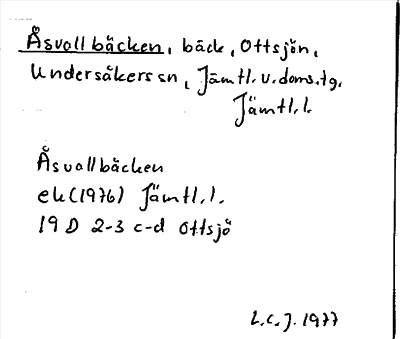 Åsvallbäcken, bäck, Ottsjön,
Undersåkers sn, Jämtl. v. doms.tg.
Jämtl. l.
Åsvallbäcken
ek (1976) Jämtl. l.
19 D 2-3 c-d Ottsjö
L.C.J. 1977